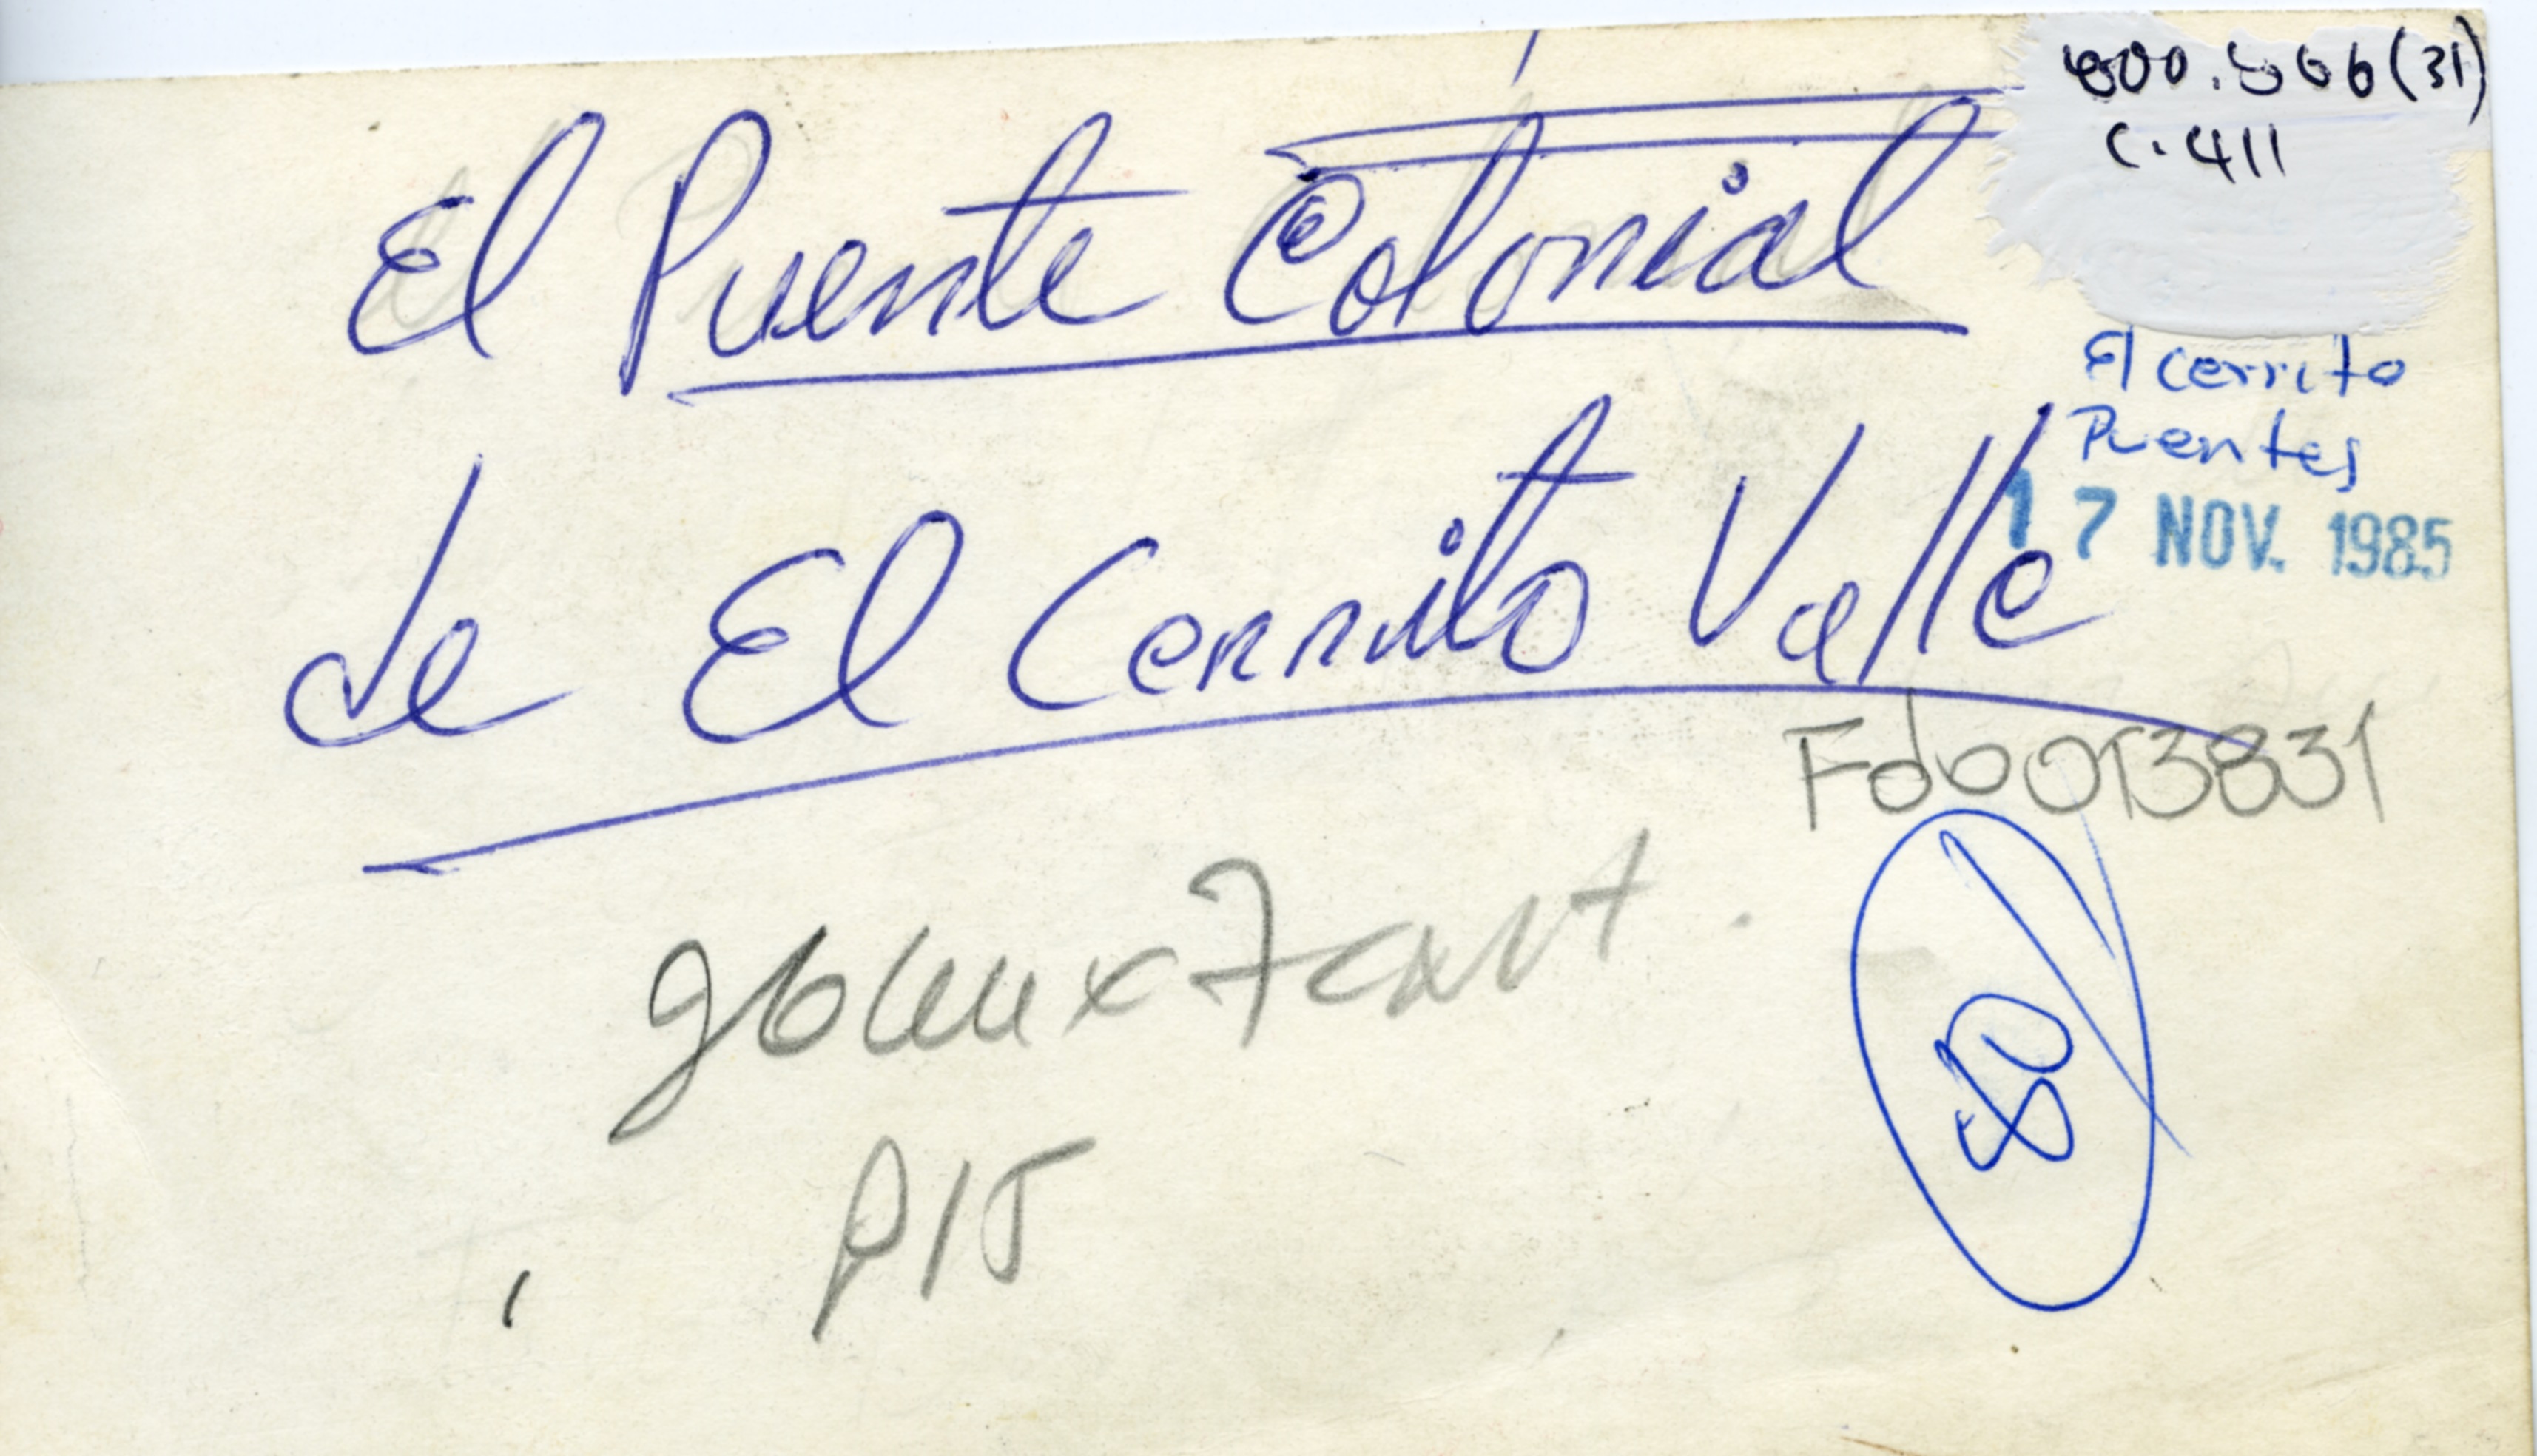 800.566(31)
C.411
El Puente Colonial
El cerrito
Puentes
17 NOV. 1985
de El Cerrito Valle
Fdb013831
P15
80